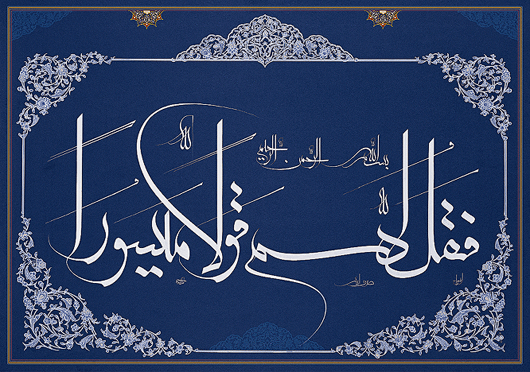 بسم الله الرحمن الرحیم
فقل لهم قولا میسورا
صدق الله